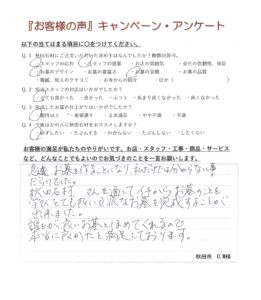 『お客様の声』キャンペーン・アンケート
以下の当てはまる項目に○をつけてください。
Q.1 秋田石材にご注文いただいた決め手はなんでしたか？複数回答可。
スタッフの応対 ・スタッフの提案 ・お店の雰囲気 ・会社の信頼性、保証
・お墓のデザイン ・お墓の豊富さ ・お墓の金額 ・お墓の品質
・親戚、知人のクチコミ ・お寺からの紹介 ・ほか（ ）
Q.2 担当スタッフの対応はいかがでしたか？
とても良かった ・良かった ・ふつう ・あまり良くなかった ・良くなかった
Q.3 完成したお墓の仕上がりはいかがでしたか？
期待以上 ・希望通り ・まあ満足 ・やや不満 ・不満
Q.4 今後ほかの人に秋田石材をおススメしますか？
必ずしたい ・たぶんする ・わからない ・たぶんしない ・したくない
お客様の満足が私たちのやりがいです。お店・スタッフ・工事・商品・サービス
など、どんなことでもよいのでお気づきのことを一言お願いします。
急遽 お墓を作ることになり、私だけでは分からない事
だらけでした。
秋田石材 さんを通して イチから お墓のことを
学びとても良い立派なお墓を完成することが
出来ました。
誰もが良いお墓とほめてくれるので
本当に良かったと満足しております。
秋田市 O.M様